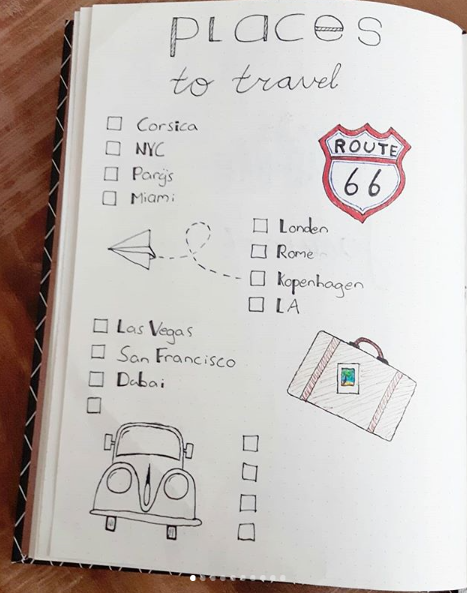 places
to travel
Corsica
NYC
Parijs
Miami
ROUTE
66
Londen
Rome
Kopenhagen
LA
Las Vegas
San Francisco
Dubai